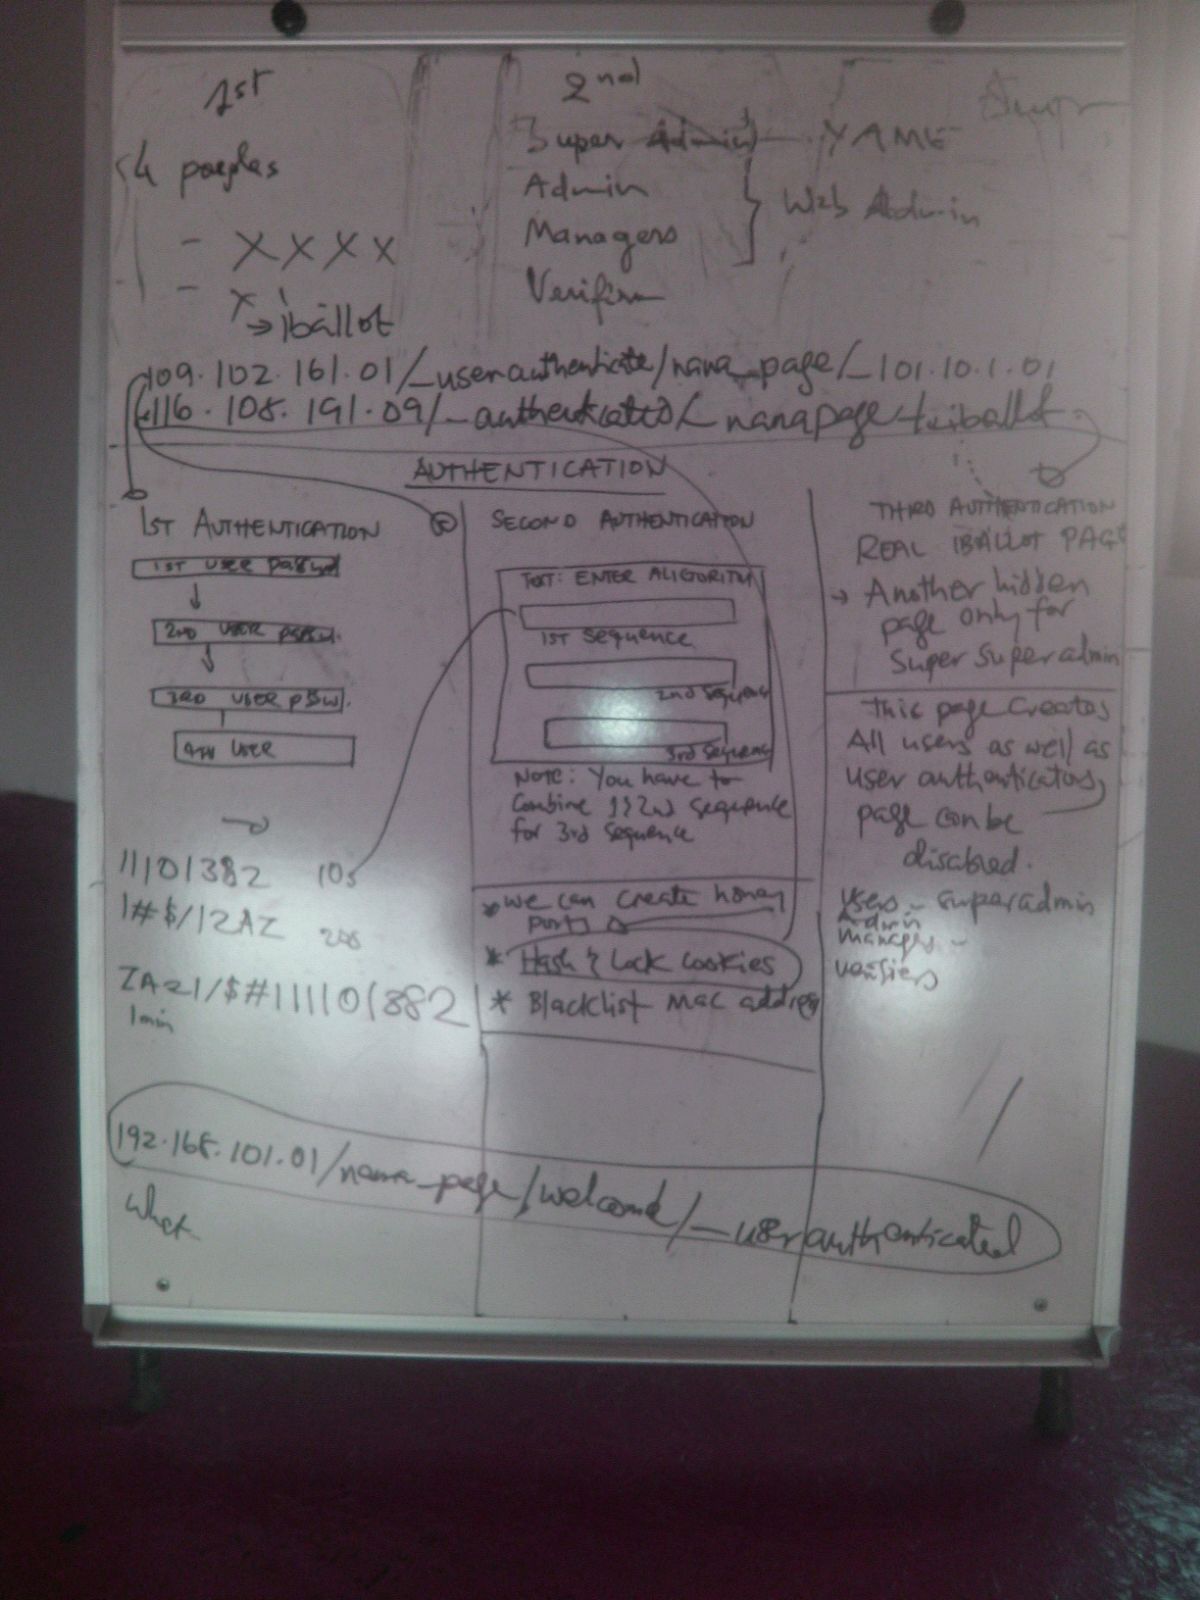 1st
4 peoples
- X X X X
- X
→ iballot
2nd
Super Admin YAME
Admin
Managers
Web Admin
109.102.161.01/_userauthenticate/nana_page/_101.10.1.01
116.108.191.09/_authenticated/_nanapage+iballot
AUTHENTICATION
1ST AUTHENTICATION
1ST USER passwd
2ND USER PSSW.
3RD USER PSSW.
4TH USER
11101382 10s
1#$/12AZ 20s
ZA21/$#11101382
1min
SECOND AUTHENTICATION
TEXT: ENTER ALIGORITHM
1ST Sequence
2nd Sequence
3rd Sequence
NOTE: You have to
Combine 1 & 2nd sequence
for 3rd sequence
* we can create honey
ports
* Hash & Lock cookies
* Blacklist mac address
THIRD AUTHENTICATION
REAL IBALLOT PAGE
→ Another hidden
page only for
Super Superadmin
This page creates
All users as well as
user authenticators,
page can be
disabled.
Users - superadmin
Admin
Managers -
verifiers
192.168.101.01/nana_page/welcome/_userauthenticated